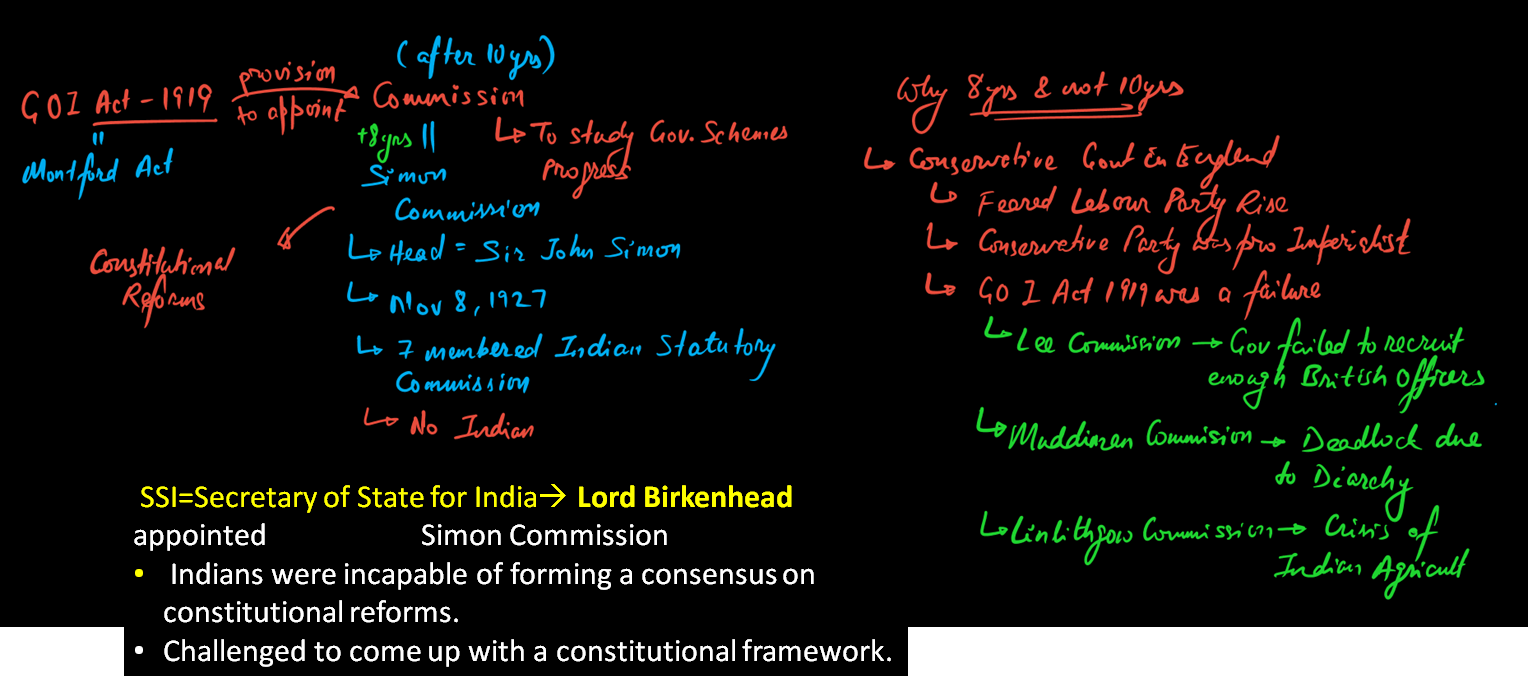 (after 10yrs)
GOI Act - 1919 provision to appoint Commission
"
Montford Act
+8yrs ||
↳ To study Gov. Schemes
Progress
Simon
Commission
Constitutional
Reforms
↳ Head = Sir John Simon
↳ Nov 8, 1927
↳ 7 membered Indian Statutory
Commission
↳ No Indian
SSI=Secretary of State for India→ Lord Birkenhead
appointed Simon Commission
• Indians were incapable of forming a consensus on
constitutional reforms.
• Challenged to come up with a constitutional framework.
Why 8yrs & not 10yrs
↳ Conservative Govt in England
↳ Feared Labour Party Rise
↳ Conservative Party was pro Imperialist
↳ GO I Act 1919 was a failure
↳ Lee Commission → Gov failed to recruit
enough British Officers
↳ Muddiman Commision → Deadlock due
to Diarchy
↳ Linlithgow Commission → Crisis of
Indian Agricult